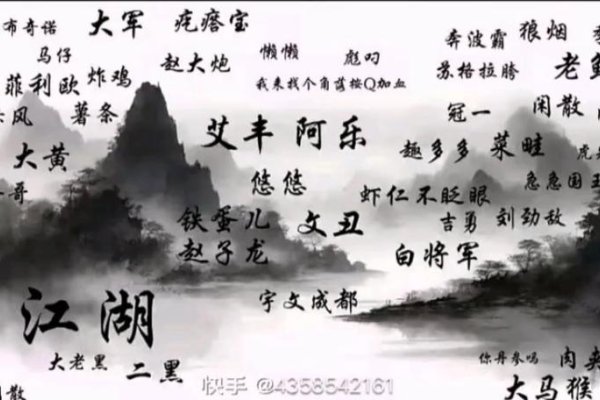 布奇诺
大军
疙瘩宝
奔波霸
狼烟
马仔
赵大炮
懒懒
彪叼
苏格拉胯
菲利欧
炸鸡
我来找个角落按Q加血
薯条
冠一
闲散
艾丰
阿乐
趣多多
菜畦
大黄
悠悠
虾仁不眨眼
急急国王
铁蛋儿
文丑
吉勇
刘劲敌
赵子龙
白将军
江湖
宇文成都
大老黑
二黑
你丹参吗
大马猴
快手 @4358542161